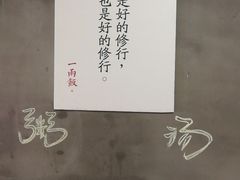 是好的修行，
也是好的修行。
一雨飯。
粥
汤